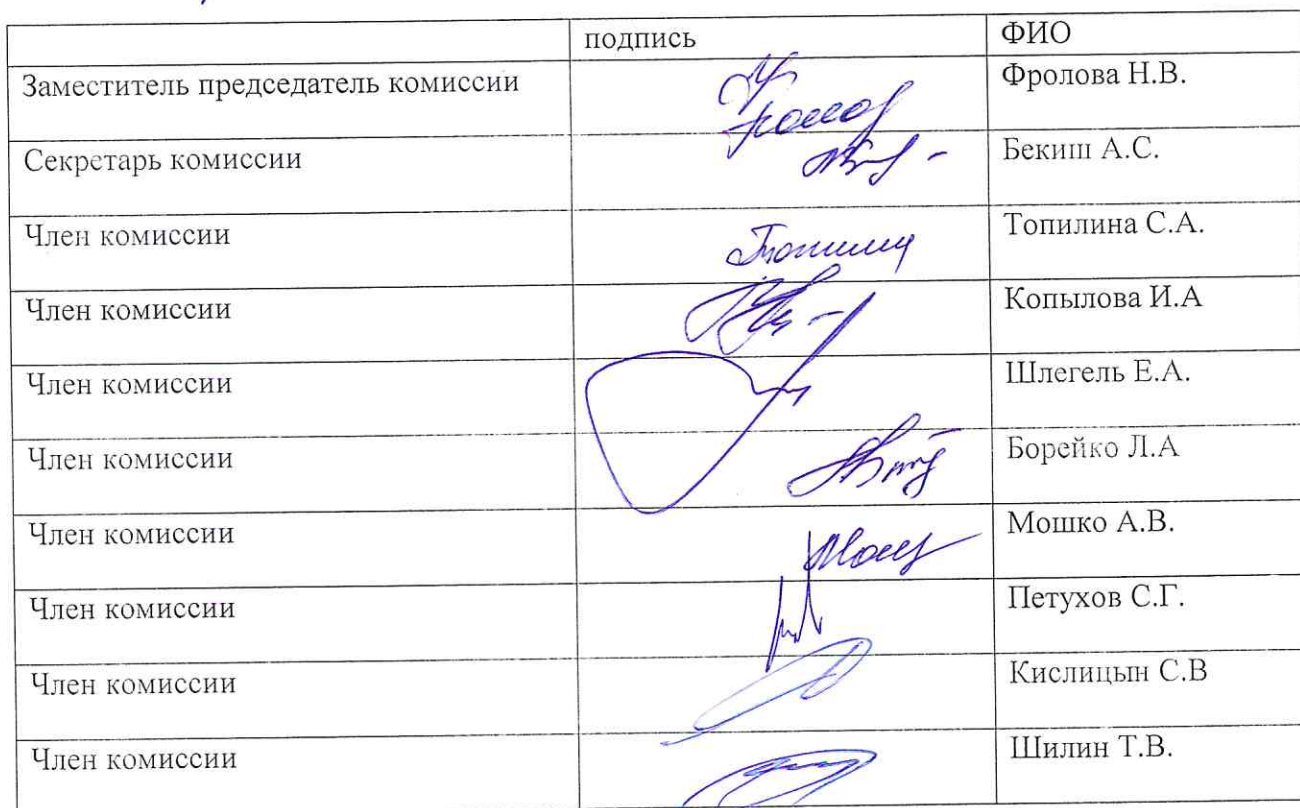 подпись ФИО
Заместитель председатель комиссии Фролова Н.В.
Секретарь комиссии Бекиш А.С.
Член комиссии Топилина С.А.
Член комиссии Копылова И.А
Член комиссии Шлегель Е.А.
Член комиссии Борейко Л.А
Член комиссии Мошко А.В.
Член комиссии Петухов С.Г.
Член комиссии Кислицын С.В
Член комиссии Шилин Т.В.